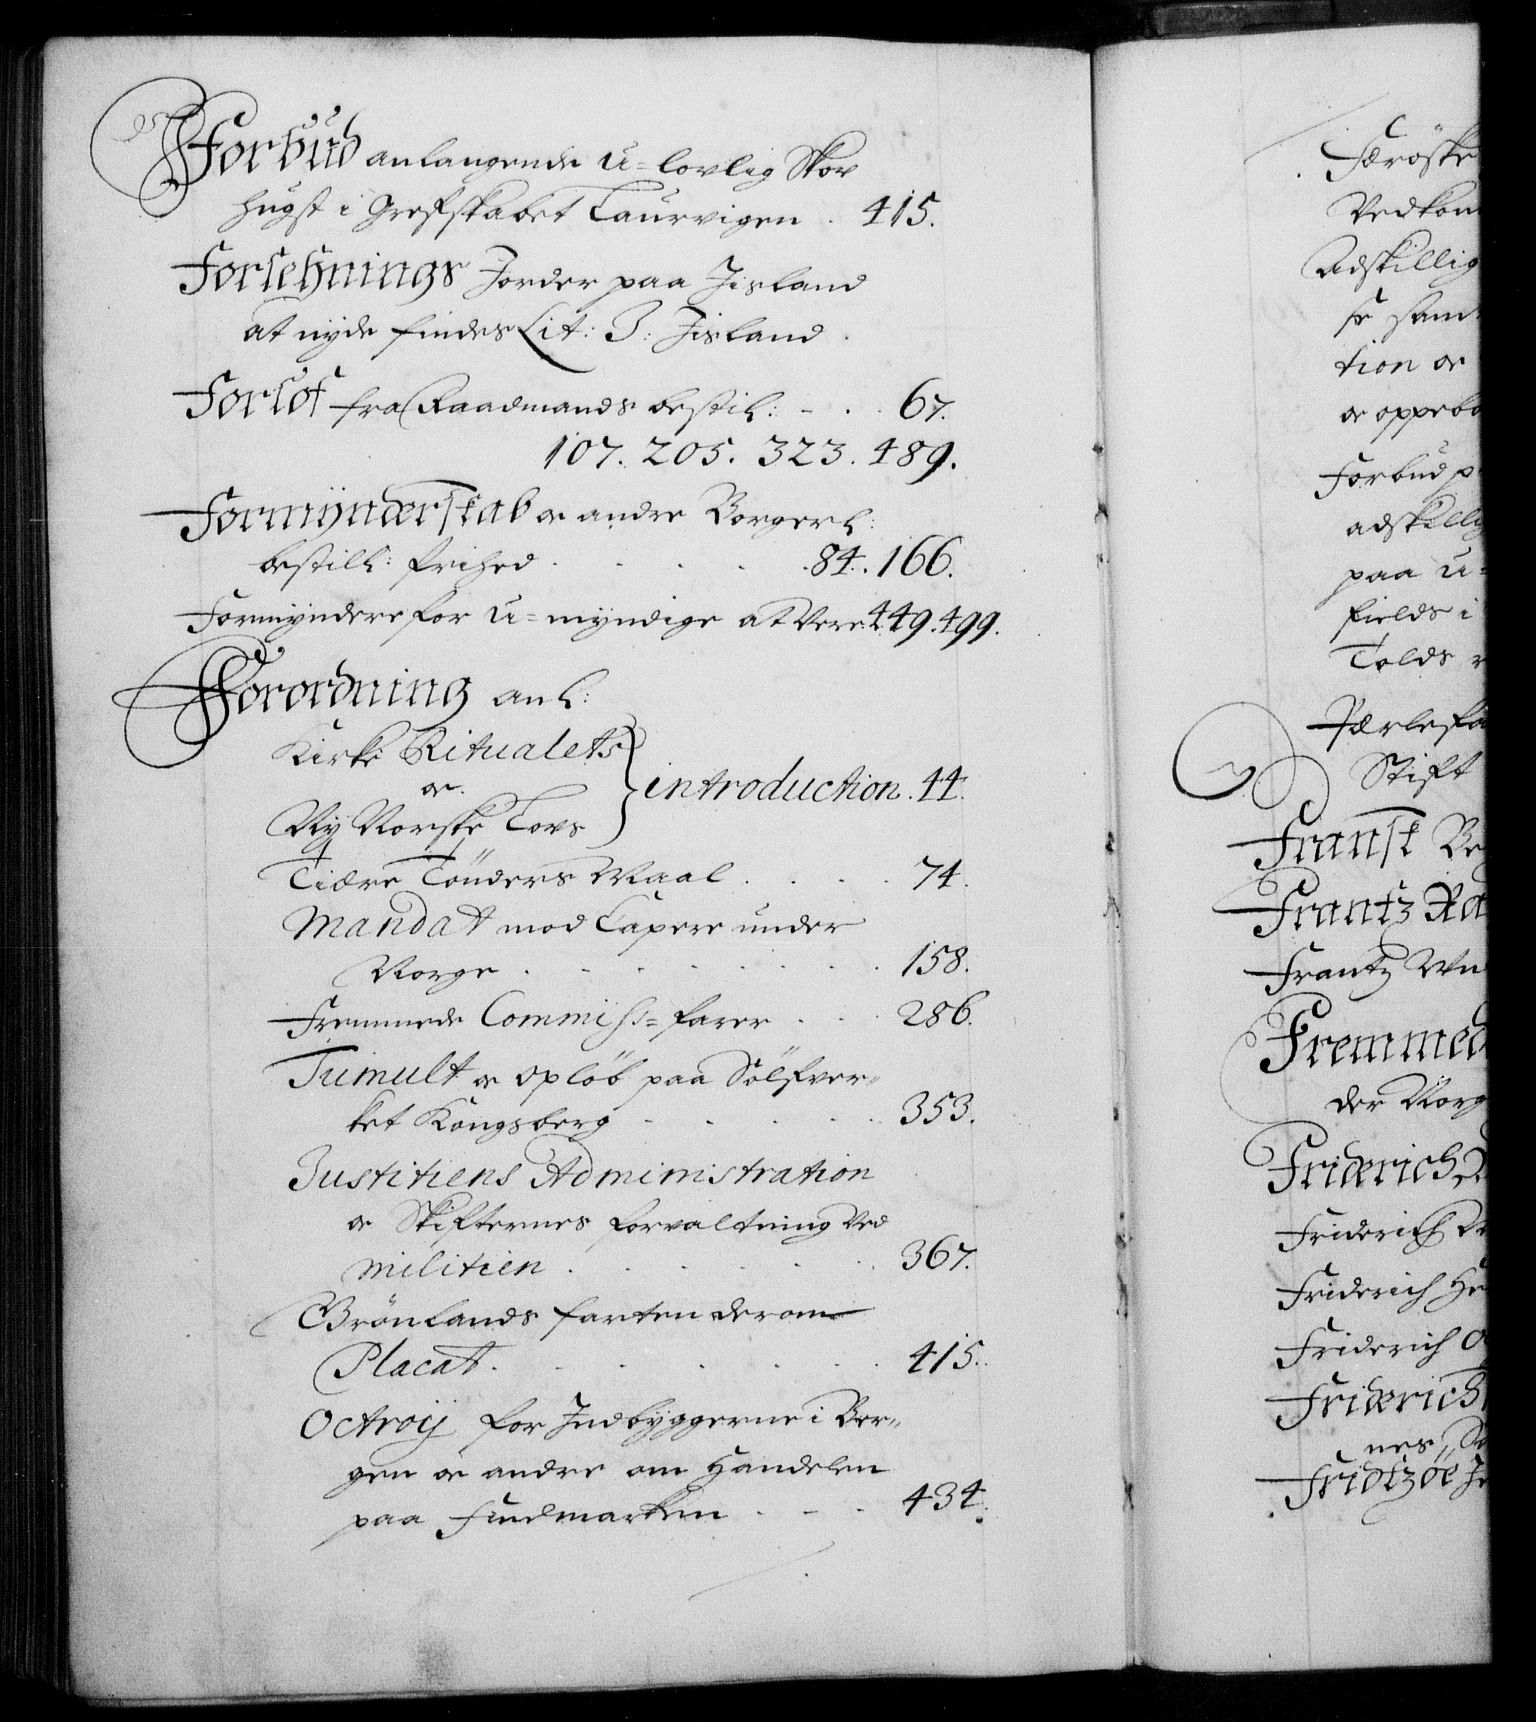 Forbud anlangende u=lovlig Skov
hugst i Grefskabet Laurvigen . 415.
Forlehnings Jorder paa Jisland
at nyde findes Lit: J: Jisland .
Forlof fra Raadmands bestil: - . . 67.
107. 205. 323. 489.
Formynderskab og andre Borgerl:
bestill: frihed . . . . . 84. 166.
Formyndere for u=myndige at Vere 449. 499.
Forordning anl:
Kirke Ritualets
og
Ny Norske Lovs } introduction. 44.
Tiære Tønders Maal . . . . 74.
Mandat mod Capere under
Norge . . . . . . . 158.
Fremmede Commiss=farer . . . 286.
Tumult og opløb paa Sølfver=
ket Kongsberg - . . . . 353.
Justitiens Administration
og Skifternes forvaltning Ved
militien . . . . . . 367.
Grønlands farten derom
Placat. . . . . . . . 415.
Octroij for Indbyggerne i Ber=
gen og andre om Handelen
paa Findmarken . - . 434.
Færøske
Vedkom
Adskillig
se samt
tion og
og oppebo
Forbud p
adskillig
paa u=
fields i
Tolds
Perlefa
Stift
Fransk Be
Frantz Ra
Frantz
Fremmed
der Norg
Friderich
Friderich
Friderich He
Friderich
Friderich
nes
Fridtzøe Je